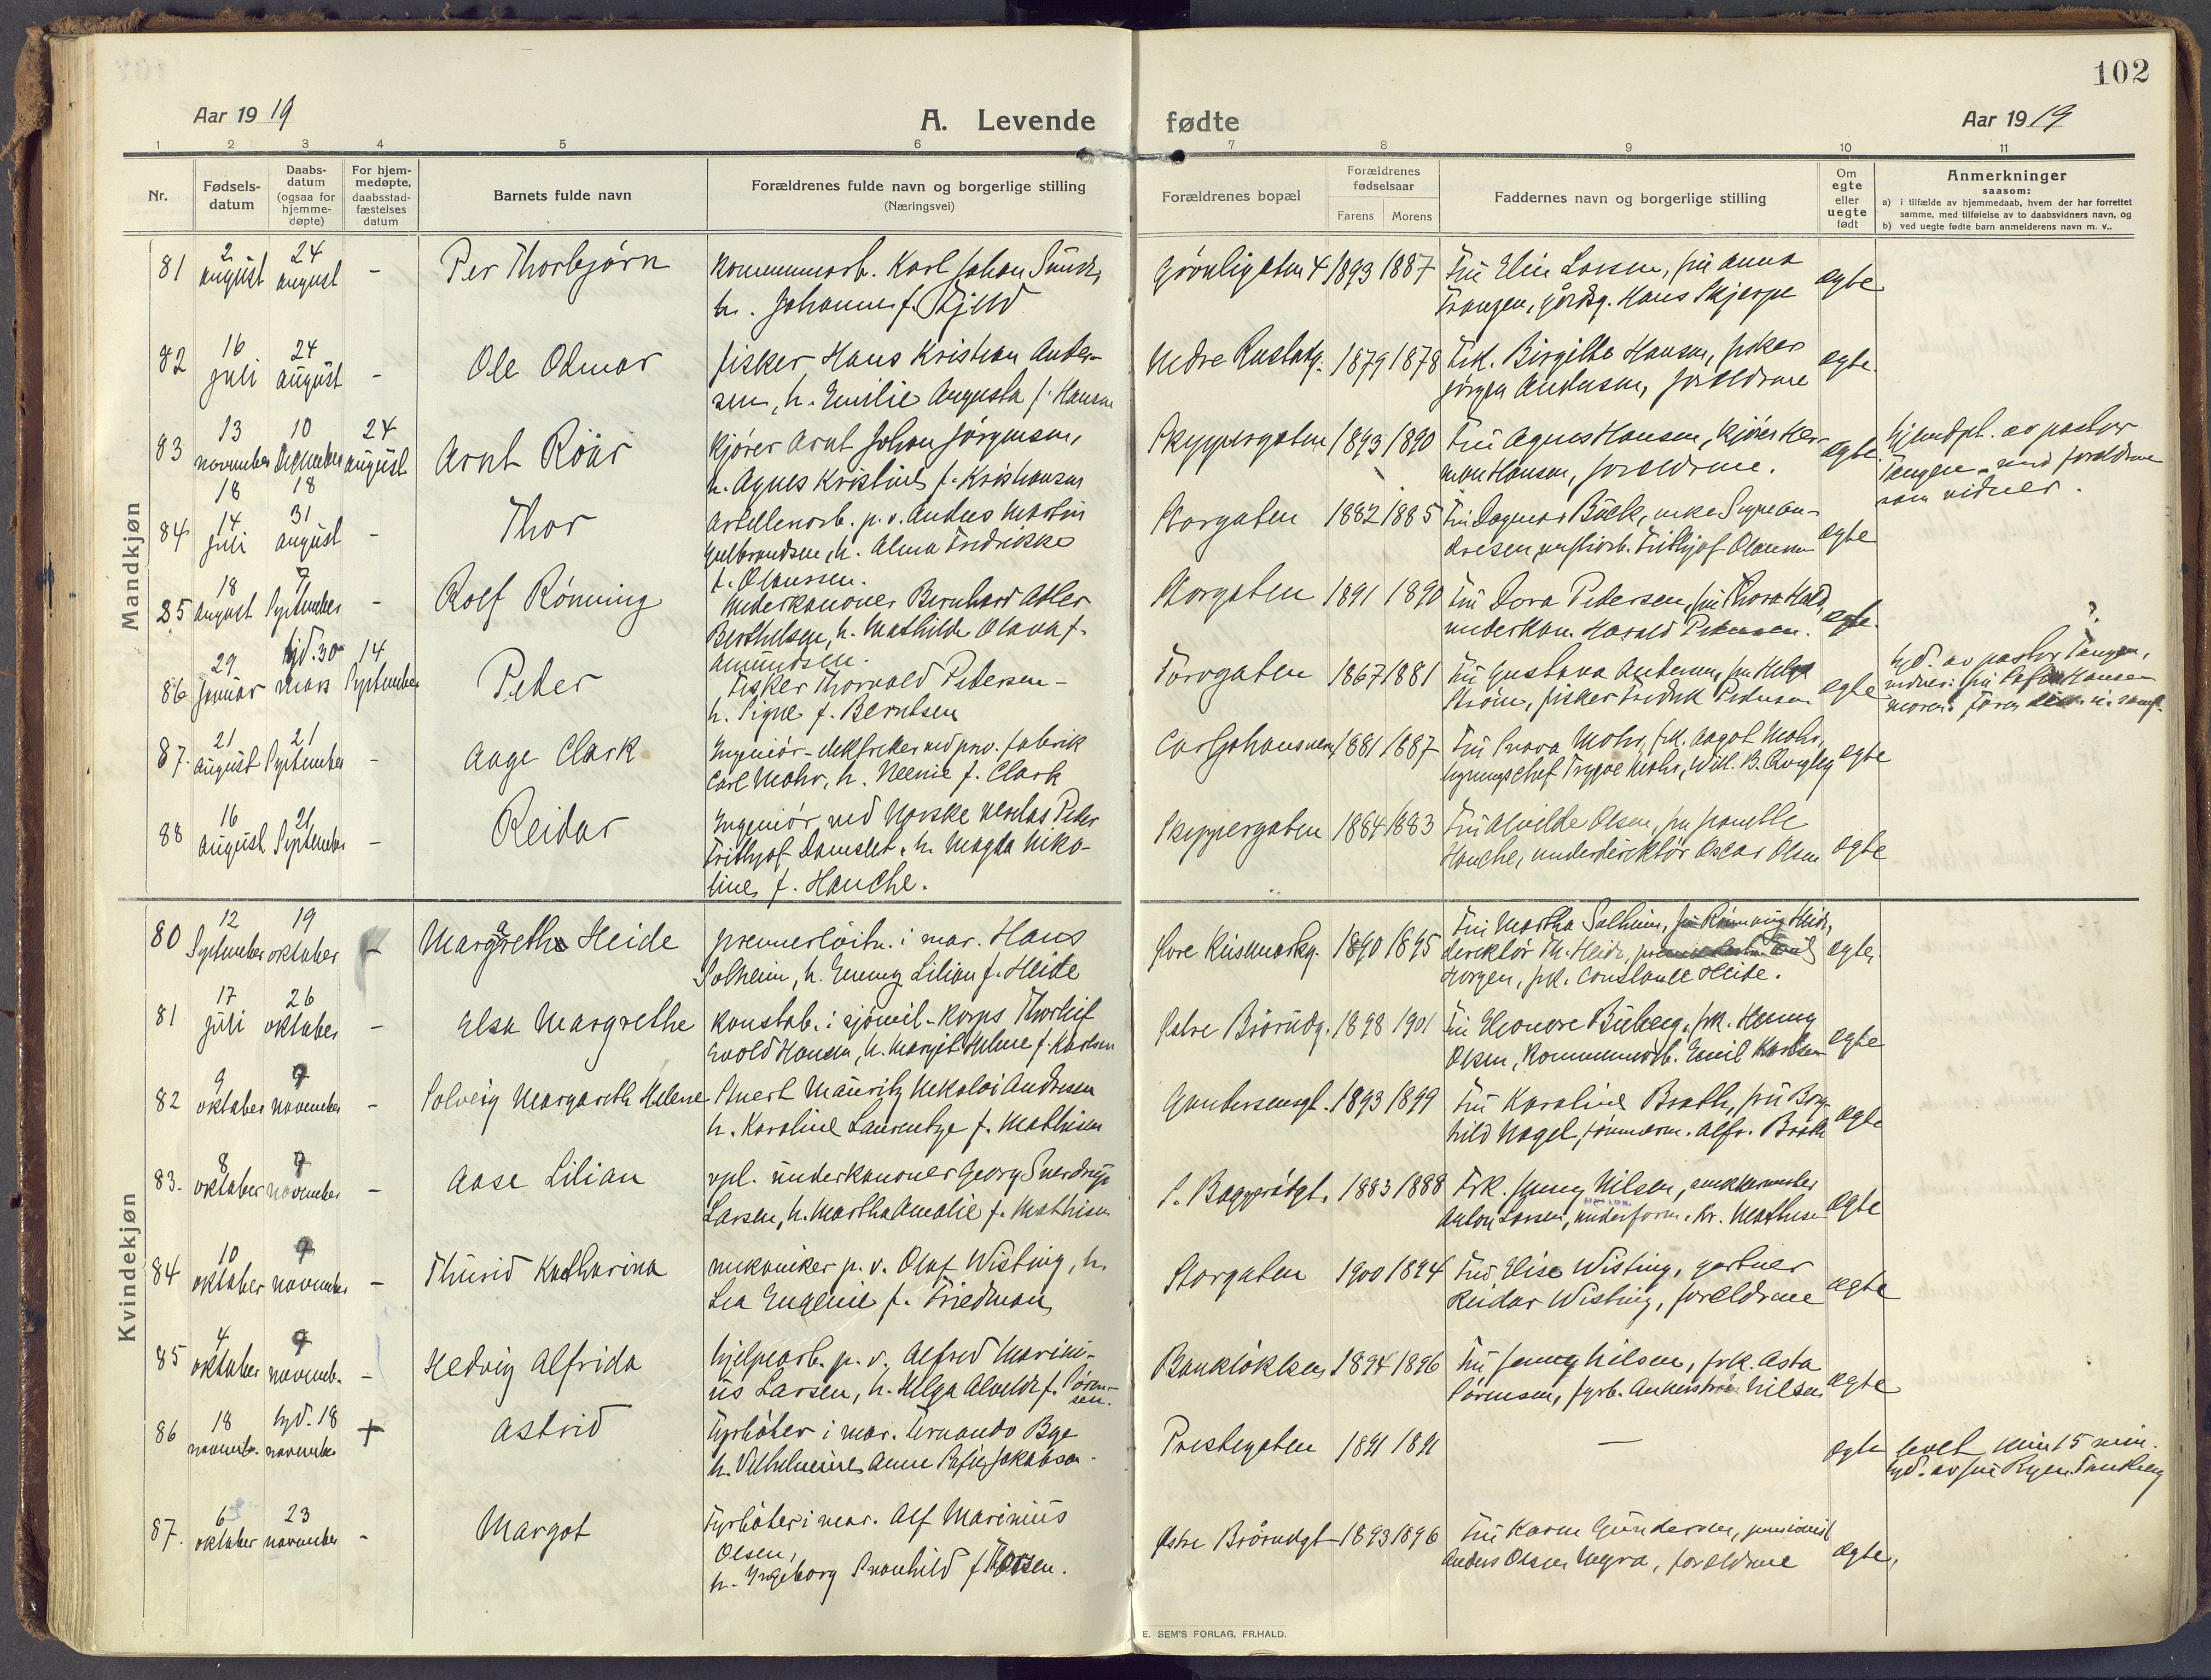 102
Aar 1919
A. Levende fødte
Aar 1919
1 2 3 4 5 6 7 8 9 10 11
Nr.
Fødsels-
datum
Daabs-
datum
(ogsaa for
hjemme-
døpte)
For hjem-
medøpte,
daabsstad-
fæstelses
datum
Barnets fulde navn
Forældrenes fulde navn og borgerlige stilling
(Næringsvei)
Forældrenes bopæl
Forældrenes
fødselsaar
Farens Morens
Faddernes navn og borgerlige stilling
Om
egte
eller
uegte
født
Anmerkninger
saasom:
a) i tilfælde av hjemmedaab, hvem der har forrettet
samme, med tilføielse av to daabsvidners navn, og
b) ved uegte fødte barn anmelderens navn m. v..
Mandkjøn
81 2 august 24 august - Per Thorbjørn
kommunearb. Karl Johan
h. Johanne f. Fjeld
Grønligaten 4 1893 1887
Fru Elin Larsen, fru Anna
Frangen, gårdsg. Hans Skjerpe
egte
82 16 juli 24 august - Ole Odmar
fisker Hans Kristian Ander-
sen, h. Emilie Augusta f. Hansen
Nedre Rustadg. 1879 1878
Frk. Birgitte Hansen, fisker
Jørgen Andersen, forældrene
egte.
83 13 november 18 10 December 18 24 august Arnt Roar
kjører Arnt Johan Jørgensen,
h. Agnes Kristine f. Kristiansen
Skyppergaten 1893 1890
Fru Agnes Hansen, kjører Her-
man Hansen, forældrene.
egte
hjemdpt. av pastor
Tangen - med forældrene
som vidner.
84 14 juli 31 august - Thor
artillerarb. p. v. Anders Martin
Gulbrandsen, h. Alma Fredrikke
f. Olaussen.
Storgaten 1882 1885
Fru Dagmar Bäck, enke Signe An-
dresen, Frithjof Olaussen
egte
85 18 august 7 September - Rolf Rønning
Underkanoner Bernhard Adler
Berthelsen, h. Mathilde Olava f.
Amundsen.
Storgaten 1891 1890
Fru Dora Pedersen, fru Thora
underkan. Harald Petersen.
egte.
86 29 januar hjd. 30 mars 14 September Peter
Fisker Thorvald Petersen -
h. Signe f. Berntsen
Torvgaten 1867 1881
Fru Gustava Andersen, fru Helga
Strøm, fisker Fredrik Petersen
egte
?
hjd. av pastor Tangen,
vidner: fru Hansen
87. 21 august 21 September - Aage Clark
Ingeniør - ved priv. fabrik
Carl Mohr, h. Neenie f. Clark
Carljohansvern 1881 1887
Fru Svava Mohr, frk. Aagot Mohr,
Trygve Mohr, Will. B.
egte
88 16 august 21 September - Reidar
Ingeniør ved Norske Veritas Peder
Frithjof Damslet, h. Magda Niko-
line f. Hanche.
Skyppergaten 1884 1883
Fru Alvilde Olsen, fru
Hanche, underdirektør Oscar Olsen
egte
Kvindekjøn
80 12 September 19 oktober - Margareth Heide
premierløitn. i mar. Hans
Solheim, h. Emmy Lilian f. Heide
Øvre Keisemarkg. 1890 1895
Fru Martha Solheim, fru Rønnaug Heide,
direktør Th. Heide,
Horgen, frk. Constance Heide.
egte.
81 17 juli 26 oktober - Elsa Margrethe
konstab. i sjømil. korps Thorleif
Evold Hansen, h. Margit Helene f. Karlsen
Østre Braarudg. 1898 1901
Fru Eleonore Büberg, frk. Henny
Olsen, kommunearb. Emil Karlsen
egte
82 9 oktober 9 november - Solveig Margareth Helene
Stuert Mauritz Nikolai Andresen
h. Karoline Laurentze f. Mathisen
Gundersensgt. 1893 1899
Fru Karoline Braath, fru Borg-
hild Nagel, tømmerm. Alfr. Braath
egte
83. 8 oktober 9 november - Aase Lilian
vpl. underkanoner Georg Sverdrup
Larsen, h. Martha Amalie f. Mathisen
S. Baggerødgt. 1883 1888
Frk. Jenny Nilsen, snekkermester
Anton Larsen, underform. Kr. Mathisen
egte
84 10 oktober 9 november - Thurid Katharina
mekaniker p. v. Olaf Wisting, h.
Lea Eugenie f. Friedman
Storgaten 1900 1894
Fru Elise Wisting, gartner
Reidar Wisting, forældrene
egte
85 4 oktober 9 novemb. - Hedvig Alfrida
hjelpearb. p. v. Alfred Marini-
us Larsen, h. Helga Alvilde f. Søren-
sen.
Bankløkken 1894 1896
Fru Jenny Nilsen, frk. Asta
Sørensen, fyrb. Ankerstrøm Nilsen
egte
86 18 novemb. hjd. 18 novembr. + Astrid
Fyrbøter i mar. Fernando Bye
h. Vilhelmine Anne Sofie Jakobsen.
Prestegaten 1891 1891
—
egte
levet kun 15 min.
hjd. av fru Ryen Tandberg
87. 6 oktober 23 november - Margot
Fyrbøter i mar. Alf Marinius
Olsen,
h. Ingeborg Svanhild f. Thorsen.
Østre Braarudgt 1893 1896
Fru Karen Gundersen, pensionist
Anders Olsen Myra, forældrene
egte,
E. SEM'S FORLAG, FR.HALD.